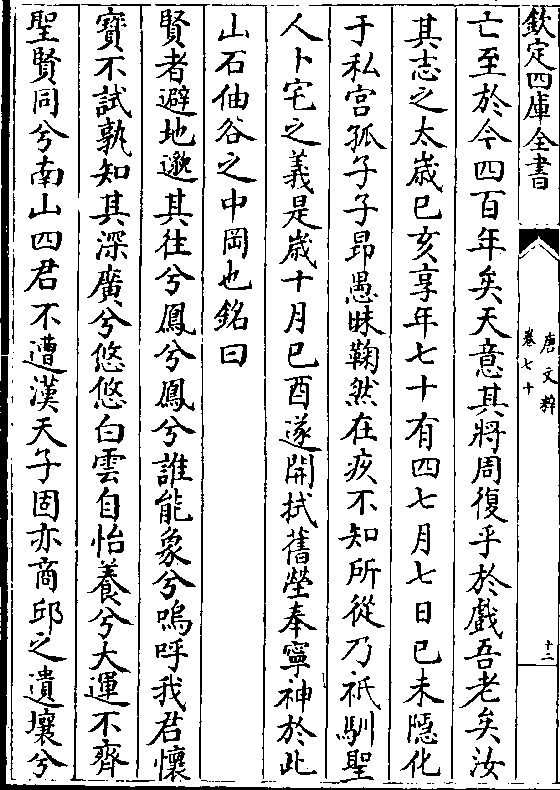 欽定四庫全書
唐文粹
卷七十
十二
亡至於今四百年矣天意其將周復乎於戲吾老矣汝
其志之太歲已亥享年七十有四七月七日已未隱化
于私宫孤子子昻愚昧鞠然在疚不知所從乃祇馴聖
人卜宅之義是歲十月已酉遂開拭舊塋奉寧神於此
山石佃谷之中岡也銘曰
賢者避地邈其往兮鳳兮鳳兮誰能象兮嗚呼我君懷
寳不試孰知其深廣兮悠悠白雲自怡養兮大運不齊
聖賢同兮南山四君不遭漢天子固亦商邱之遺壤兮